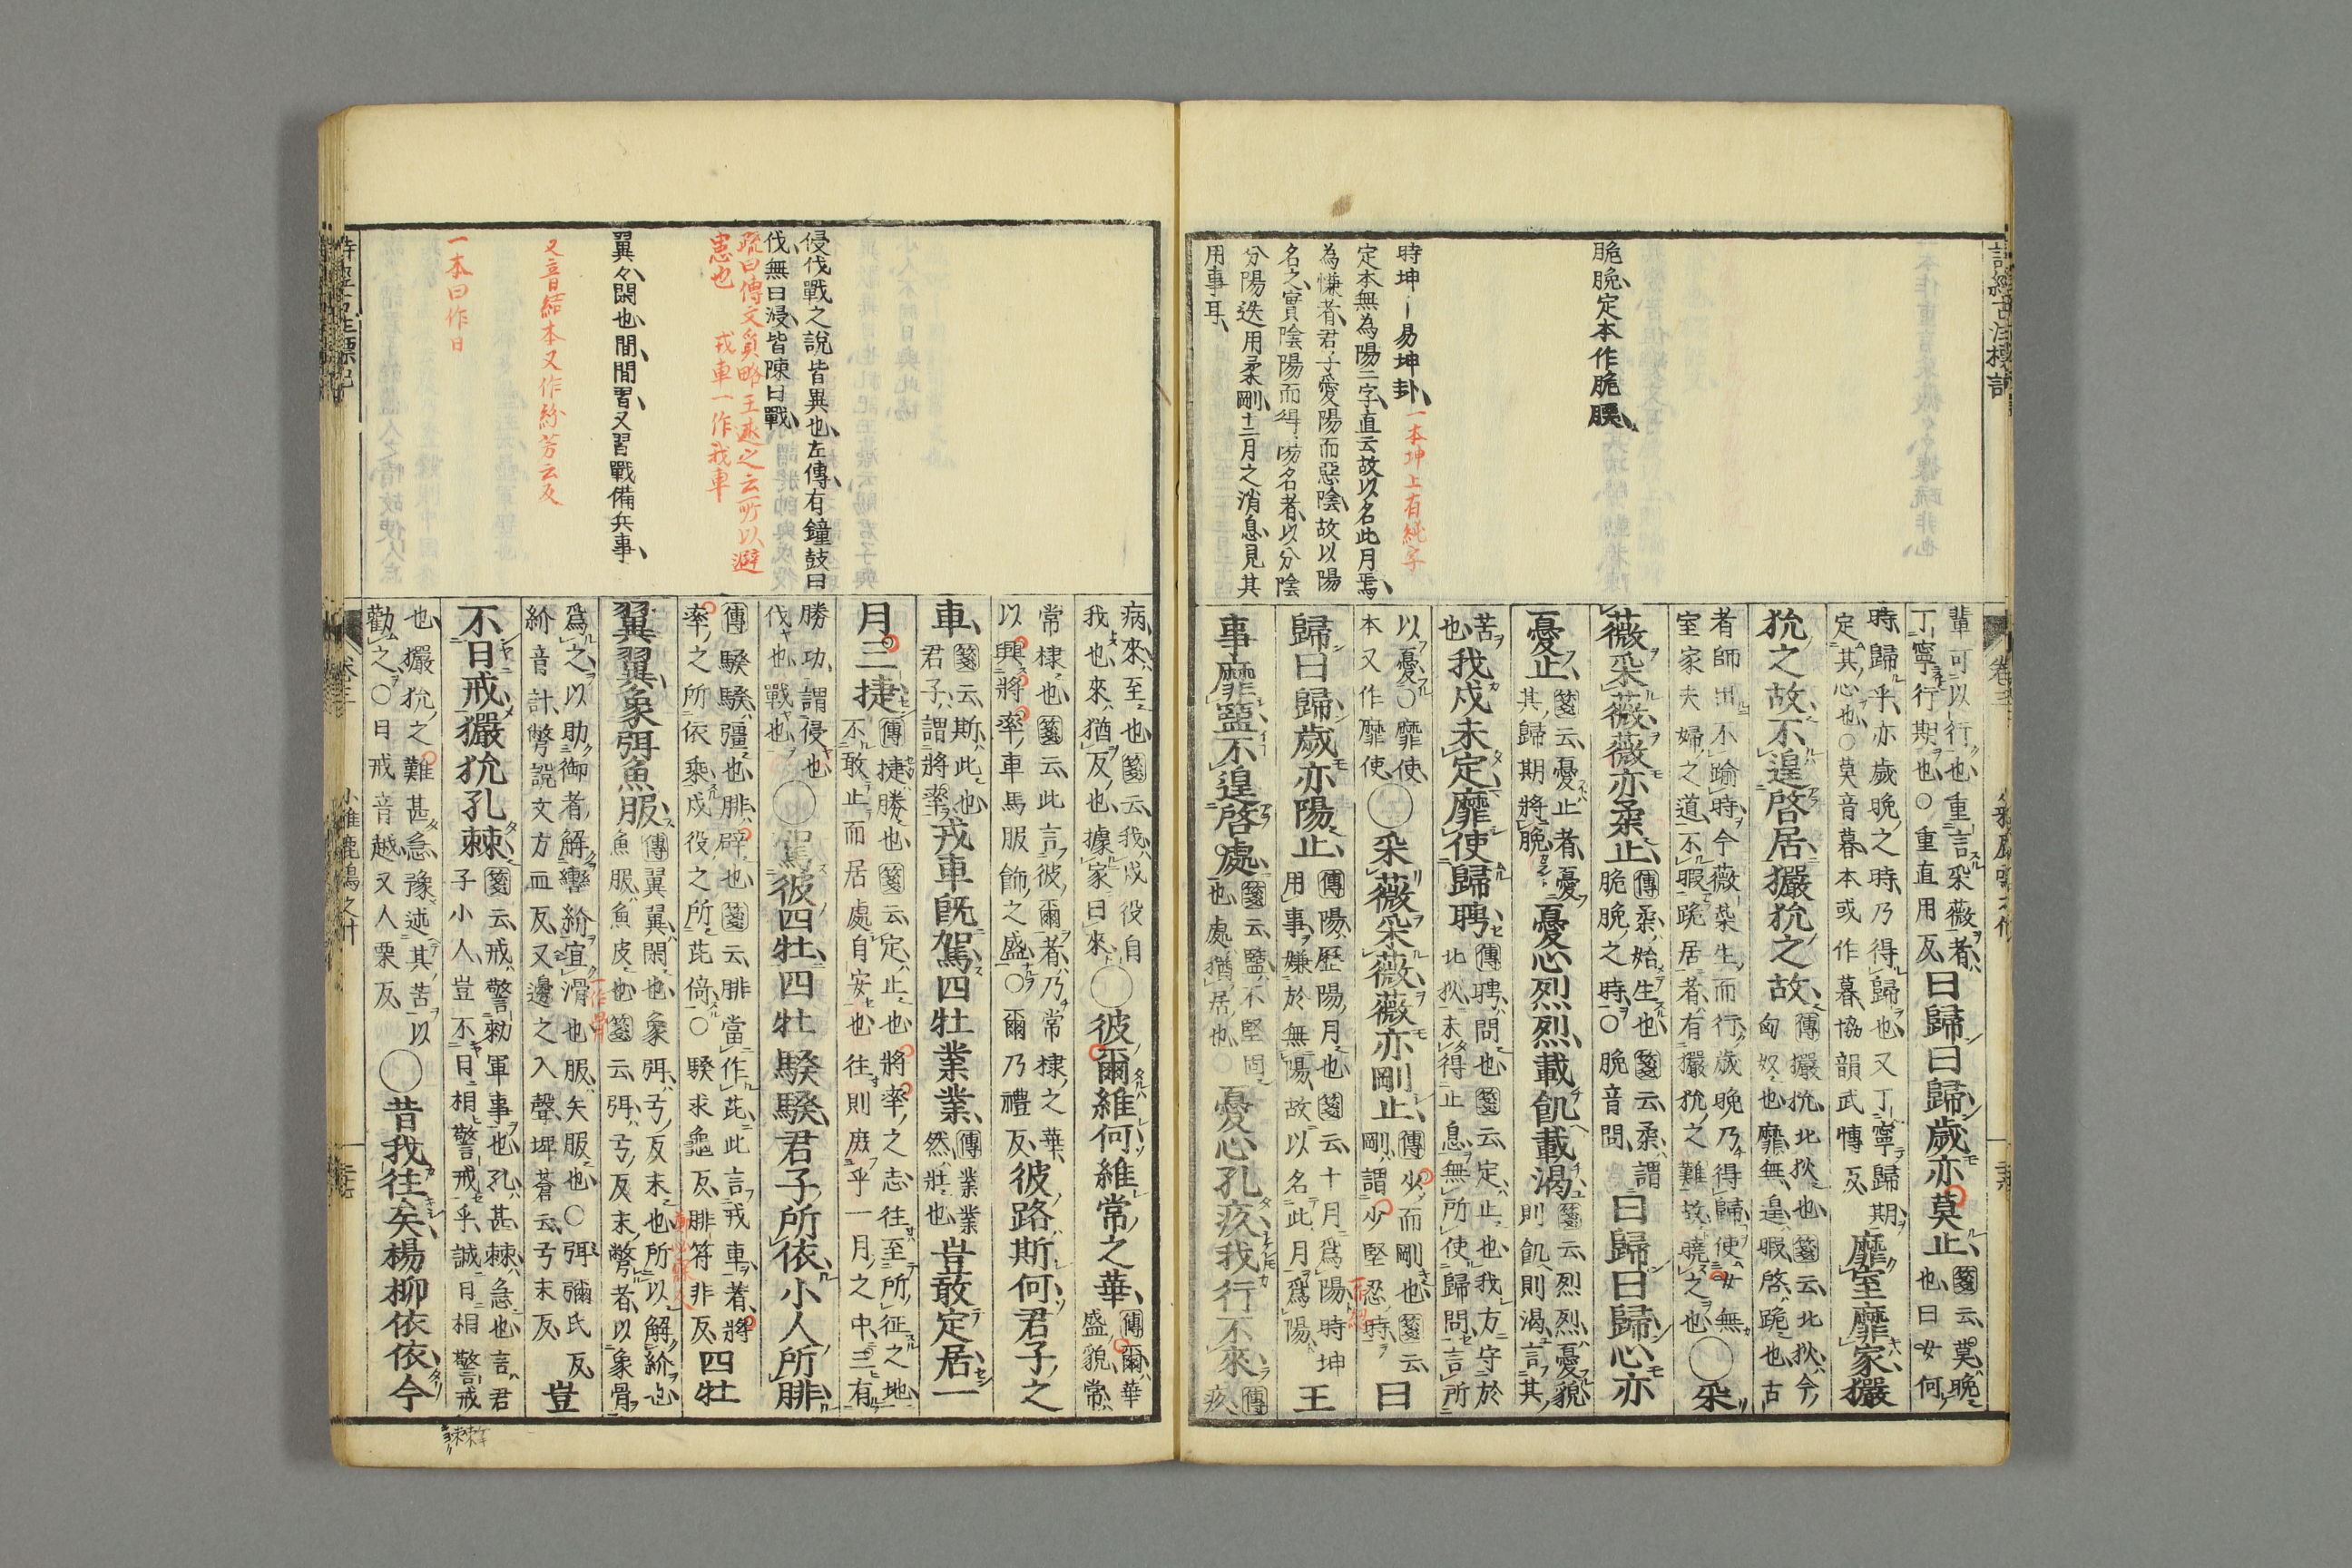 詩經古注標記
脆脕定本作脆腝
時坤｜易坤卦
一本坤上有純字
定本無為陽二字直云故以名此月焉
為慊者君子愛陽而惡陰故以陽
名之實陰陽而得
分陽迭用柔剛十二月之消息見其
用事耳
輩可以行也重言采薇者
丁寧行期也○重直用反
曰歸曰歸歲亦莫止
箋云莫晚也曰女何
時歸乎亦歲晩之時乃得歸也又丁寧歸期
定其心也○莫音暮本或作暮協韻武博反
靡室靡家玁
狁之故不遑啓居玁狁之故
傳玁狁北狄也箋云北狄今
匈奴也靡無遑暇啓跪也古
者師出不踰時今薇菜生而行歲晚乃得歸使女無
室家夫婦之道不暇跪居者有玁狁之難故曉之也
○采
薇采薇薇亦柔止
傳柔始生也箋云柔謂
脆脕之時○脕音問
曰歸曰歸心亦
憂止
箋云憂止者憂
其歸期將晚
憂心烈烈載飢載渴
箋云烈烈憂貌
則飢則渴言其
苦
也
我戍未定靡使歸聘
傳聘問也箋云定止也我方守於
北狄未得止息無所使歸問言所
以憂○靡使
本又作靡使
○采薇采薇薇亦剛止
傳少而剛也箋云
剛謂少堅忍時
曰
歸曰歸歲亦陽止
傳陽歷陽月也箋云十月爲陽時坤
用事嫌於無陽故以名此月爲陽
王
事靡盬不遑啓處
箋云盬不堅固
也處猶居也○
憂心孔疚我行不來
傳
疚
侵伐戰之說皆異也左傳有鐘鼓曰
伐無曰浸皆陳曰戰
疏曰傳文質略王述之云所以避
患也
戎車一作我車
翼々閑也閒閒習又習戰備兵事
又音結本又作紛芳云反
一本曰作日
病來至也箋云我戍役自
我也來猶反也據家曰來
○彼爾維何維常之華
傳爾華
盛貌常
常棣也箋云此言彼爾者乃常棣之華
以興將率車馬服飾之盛○爾乃禮反
彼路斯何君子之
車
箋云斯此也
君子謂將率
戎車既駕四牡業業
傳業業
然壯也
豈敢定居一
月三捷
傳捷勝也箋云定止也將率之志往至所征之地
不敢止而居處自安也往則庶乎一月之中三有
勝功謂侵也
伐也戰也
○駕彼四牡四牡騤騤君子所依小人所腓
傳騤騤彊也腓辟也箋云腓當作芘此言戎車者將
率之所依乘戍役之所芘倚○騤求龜反腓符非反
四牡
翼翼象弭魚服
傳翼翼閑也象弭弓反末也所以解紒也
魚服魚皮也箋云弭弓反末彆者以象骨
爲之以助御者解轡紒宜滑也服矢服也○弭彌氏反
紒音計彆說文方血反又邊之入聲埤蒼云弓末反
豈
不日戒玁狁孔棘
箋云戒警勑軍事也孔甚棘急也言君
子小人豈不日相警戒乎誠日相警戒
也玁狁之難甚急豫述其苦以
勸之○日戒音越又人栗反
○昔我往矣楊柳依依今